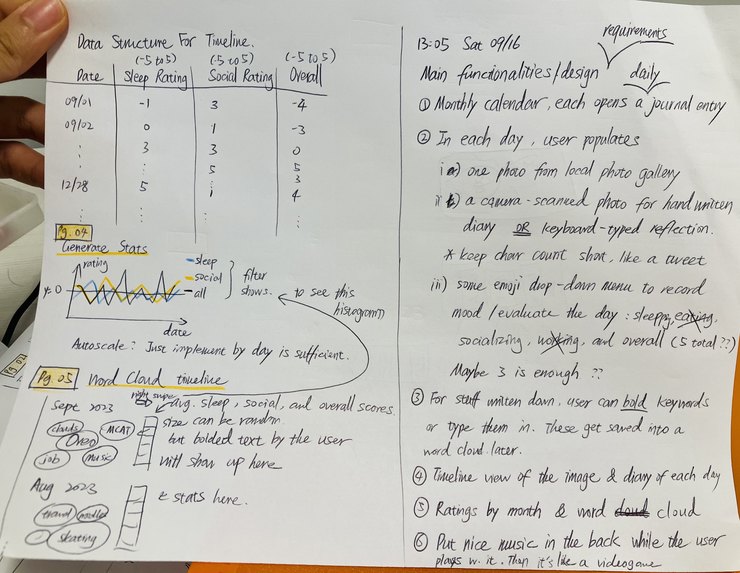 Data Structure For Timeline.
(-5 to 5) (-5 to 5) (-5 to 5)
Date Sleep Rating Social Rating Overall
09/01 -1 3 -4
09/02 0 1 -3
: 3 3 0
: : 5 5
3
12/28 5 1 4
: : : :
Pg. 04
Generate Stats
rating
y=0
date
sleep
social
all
filter
shows.
to see this
histogram
Autoscale: Just implement by day is sufficient.
Pg. 05 Word Cloud timeline
right swipe
Sept 2023
clouds
Oreo
MCAT
job
music
avg. sleep, social, and overall scores.
size can be random
but bolded text by the user
will show up here
Aug 2023
travel
skating
stats here.
13:05 Sat 09/16
requirements
Main functionalities/design
daily
① Monthly calendar, each opens a journal entry
② In each day, user populates
i) one photo from local photo gallery
ii) a camera-scanned photo for handwritten
diary OR keyboard-typed reflection.
* keep char count short, like a tweet
iii) some emoji drop-down menu to record
mood/evaluate the day: sleeping, eating,
socializing, working, and overall (5 total??)
Maybe 3 is enough ??
③ For stuff written down, user can bold keywords
or type them in. These get saved into a
word cloud later.
④ Timeline view of the image & diary of each day
⑤ Ratings by month & word cloud cloud
⑥ Put nice music in the back while the user
plays w. it. Then it's like a videogame